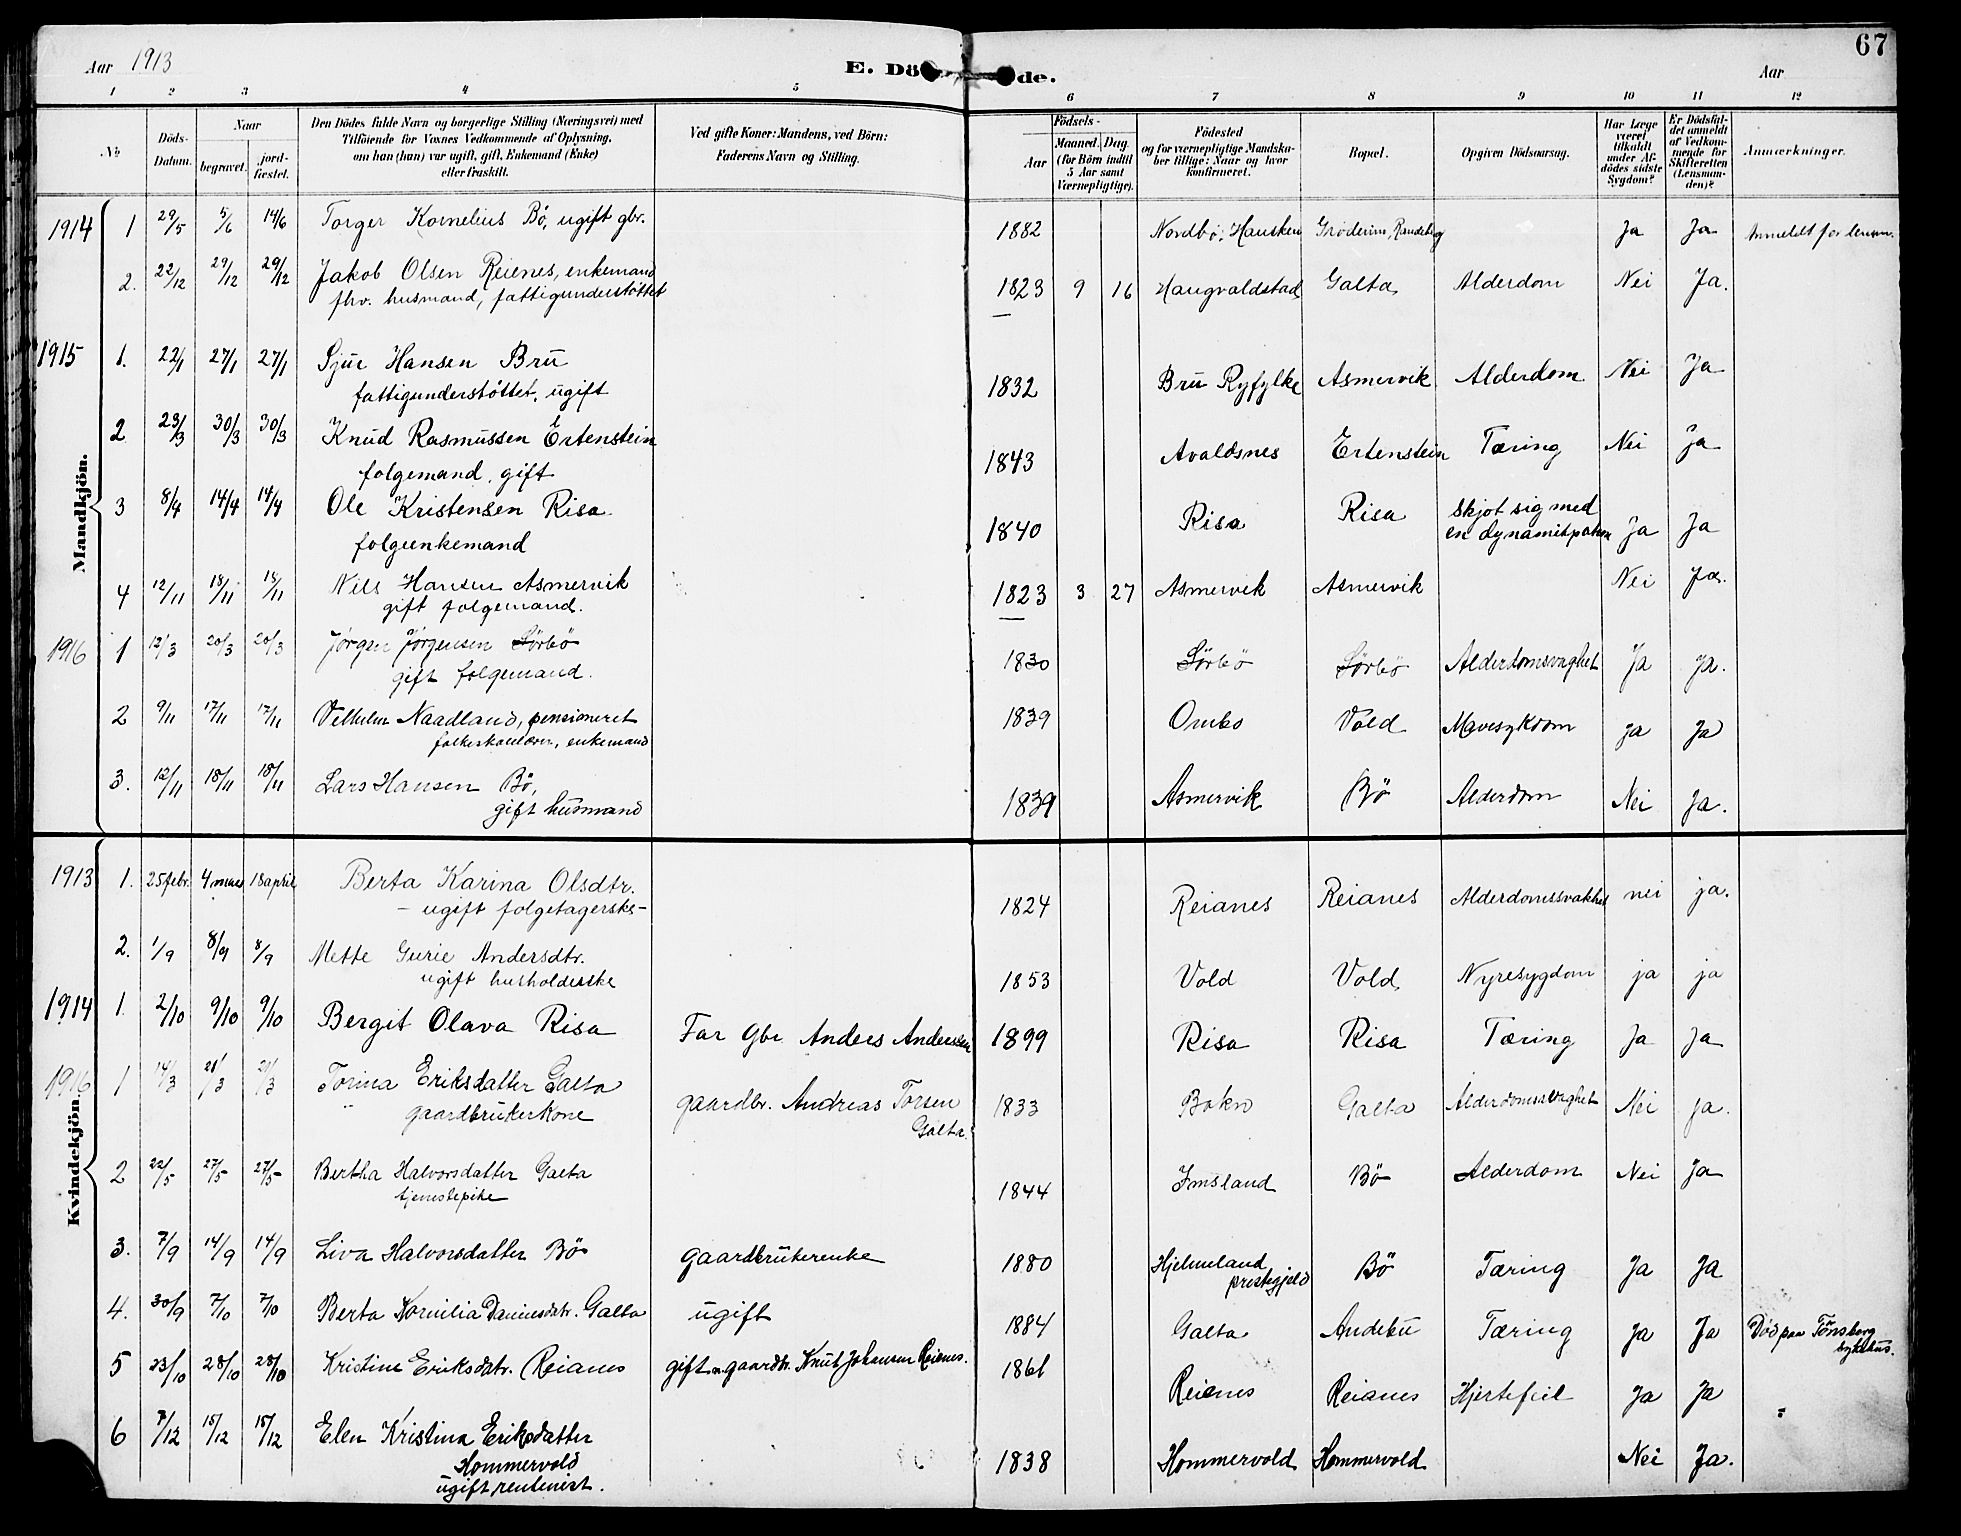 67
Aar 1913 E. Döde. Aar
1 2 3 4 5 6 7 8 9 10 11 12
No
Döds-Datum.
Naar
begravet.
jord-fæstet.
Den Dödes fulde Navn og borgerlige Stilling (Næringsvei) med
Tilföiende for Voxnes Vedkommende af Oplysning,
om han (hun) var ugift, gift, Enkemand (Enke)
eller fraskilt.
Ved gifte Koner: Mandens, ved Börn:
Faderens Navn og Stilling.
Födsels-
Aar
Maaned. Dag.
(for Börn indtil
5 Aar samt
Værnepligtige).
Födested
og for værnepligtige Mandska-
ber tillige: Naar og hvor
konfirmeret.
Bopæl.
Opgiven Dödsaarsag.
Har Læge
været
tilkaldt
under Af-
dödes sidste
Sygdom?
Er Dödsfal-
det anmeldt
af Vedkom-
mende for
Skifteretten
(Lensman-
den)?
Anmærkninger.
Mandkjön.
1914 1 29/5 5/6 14/6 Torger Kornelius Bö, ugift gbr. 1882 Nordbö, Hausken Gröderim, Randeberg Ja Ja Anmeldt for lensm.
2. 22/12 29/12 29/12 Jakob Olsen Reienes, enkemand 1823 9 16 Haugvaldstad Galta Alderdom Nei Ja.
fhv. husmand, fattigunderstöttet
1915 1. 22/1 27/1 27/1 Sjur Hansen Bru 1832 Bru Ryfylke Asmervik Alderdom Nei Ja
fattigunderstöttet, ugift
2 23/3 30/3 30/3 Knud Rasmussen Ertenstein 1843 Avaldsnes Ertenstein Tæring Nei Ja
folgemand, gift
3 8/4 14/4 14/4 Ole Kristensen Risa 1840 Risa Risa Skjöt sig med
en dynamitpatron Ja Ja
folgeenkemand
4 12/11 18/11 18/11 Nils Hansen Asmervik 1823 3 27 Asmervik Asmervik Nei Ja.
gift folgemand.
1916 1 12/3 20/3 20/3 Jörgen Jörgensen Sörbö 1830 Sörbö Sörbö Alderdomsvaghet Ja Ja.
gift folgemand.
2 9/11 17/11 17/11 Vilhelm Naadland, pensioneret 1839 Ombo Vold Mavesykdom ja Ja
folkeskolelærer, enkemand
3. 12/11 18/11 18/11 Lars Hansen Bö, 1839 Asmervik Bö Alderdom Nei Ja.
gift husmand
Kvindekjön.
1913 1. 25 febr. 4 mars 18 april Berta Karina Olsdtr. 1824 Reianes Reianes Alderdomssvakhet nei ja.
- ugift folgetagerske -
2. 1/9 8/9 8/9 Mette Gurie Andersdtr. 1853 Vold Vold Nyresygdom ja ja
ugift husholderske
1914 1. 2/10 9/10 9/10 Bergit Olava Risa Far Gbr Anders Anderssen 1899 Risa Risa Tæring Ja Ja
1916 1 14/3 21/3 21/3 Torina Eriksdatter Galta gaardbr. Andreas Torsen Galta. 1833 Bokn Galta Alderdomsvaghet Nei ja.
gaardbrukerkone
2 22/5 27/5 27/5 Bertha Halvorsdatter Galta 1844 Imsland Bö Alderdom Nei Ja
tjenestepike
3. 7/9 14/9 14/9 Liva Halvorsdatter Bö gaardbrukerenke 1880 Hjelmeland
prestegjeld Bö Tæring Ja Ja
4. 30/9 7/10 7/10 Berta Kornilia Danielsdatr. Galta ugift 1884 Galta Andebu Tæring ja Ja Död paa Tönsberg
sykehus.
5 23/10 28/10 28/10 Kristine Eriksdatr. Reianes gift m. gaardbr. Knut Johansen Reienes. 1861 Reienes Reianes Hjertefeil Ja Ja
6 7/12 15/12 15/12 Elen Kristina Eriksdatter 1838 Hommervold Hommervold Nei Ja.
Hommervold
ugift, rentenist.